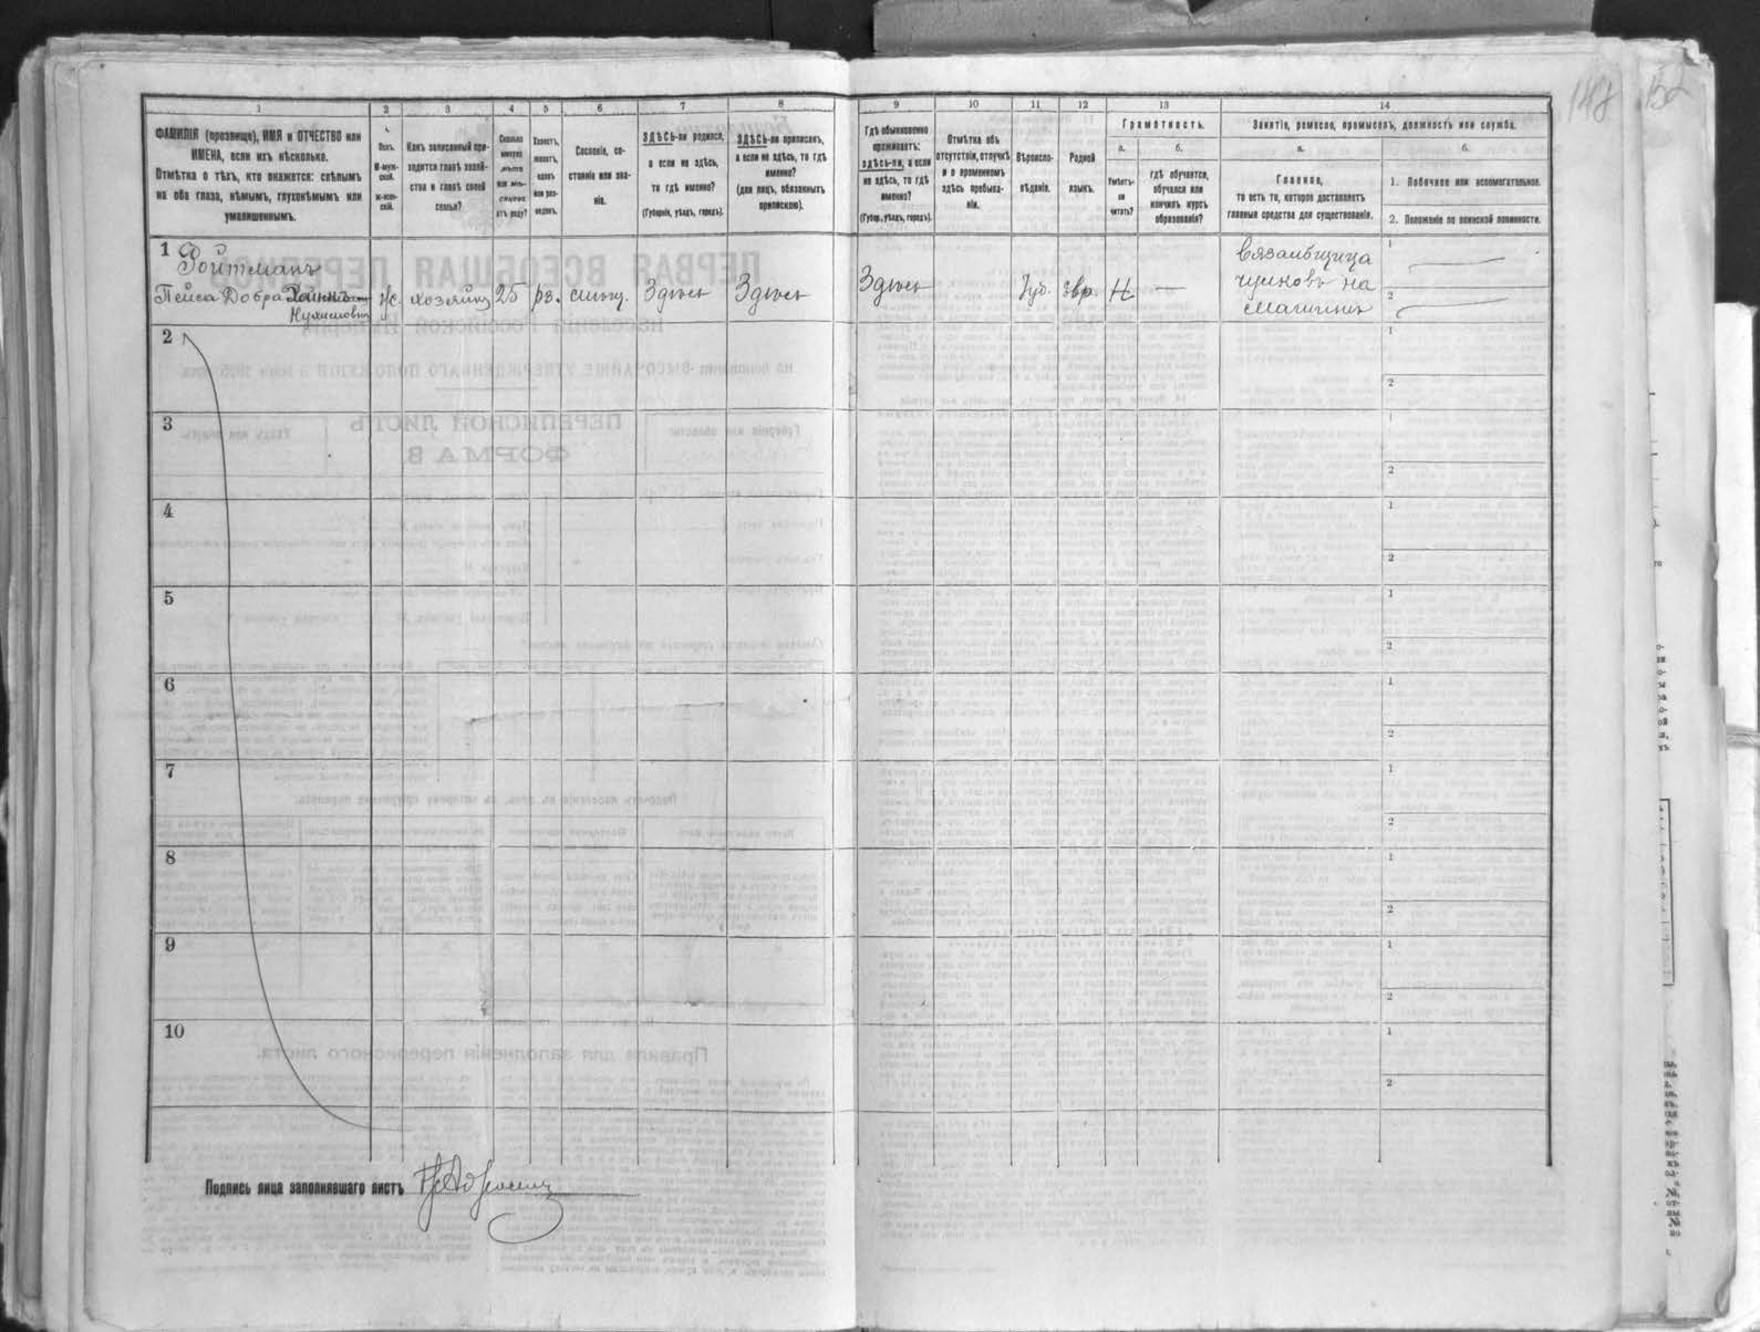 148 152
1 2 3 4 5 6 7 8 9 10 11 12 13 14
ФАМИЛІЯ (прозвище), ИМЯ и ОТЧЕСТВО или
ИМЕНА, если ихъ нѣсколько.
Отмѣтка о тѣхъ, кто окажется: слѣпымъ
на оба глаза, нѣмымъ, глухонѣмымъ или
умалишеннымъ.
Полъ.
М-муж-
ской.
Ж-жен-
скій.
Какъ записанный при-
ходится главѣ хозяй-
ства и главѣ своей
семьи?
Сколько
минуло
лѣтъ
или мѣ-
сяцевъ
отъ роду?
Холостъ,
женатъ,
вдовъ
или раз-
веденъ.
Сословіе, со-
стояніе или зва-
ніе.
ЗДѢСЬ-ли родился,
а если не здѣсь,
то гдѣ именно?
(Губернія, уѣздъ, городъ).
ЗДѢСЬ-ли приписанъ,
а если не здѣсь, то гдѣ
именно?
(для лицъ, обязанныхъ
припискою).
Гдѣ обыкновенно
проживаетъ:
здѣсь-ли, а если
не здѣсь, то гдѣ
именно?
(Губер., уѣздъ, городъ).
Отмѣтка объ
отсутствіи, отлучкѣ
и о временномъ
здѣсь пребыва-
ніи.
Вѣроиспо-
вѣданіе.
Родной
языкъ.
Грамотность.
а. б.
Умѣетъ-
ли
читать?
гдѣ обучается,
обучался или
кончилъ курсъ
образованія?
Занятіе, ремесло, промыселъ, должность или служба.
а. б.
Главное,
то есть то, которое доставляетъ
главныя средства для существованія.
1. Побочное или вспомогательное.
2. Положеніе по воинской повинности.
1 Ройтманъ
Пейса Добра
ж. хозяинъ 25 рз. Здѣсь Здѣсь
Здѣсь Іуд. Евр. Н —
Вязальщица
чулковъ на
машинѣ
1
2
2 1
2
3 1
2
4 1
2
5 1
2
6 1
2
7 1
2
8 1
2
9 1
2
10 1
2
Подпись лица заполнявшаго листъ